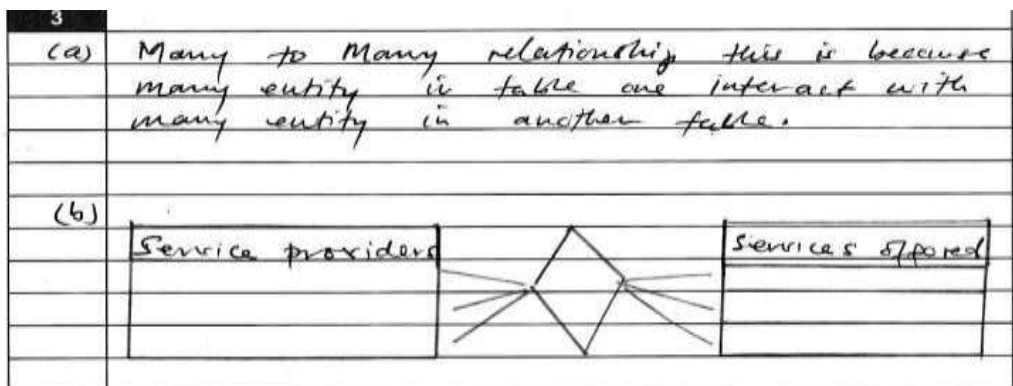 3
(a) Many to Many relationship this is because
many entity in table one interact with
many entity in another table.
(b)
Service providers
Services offored